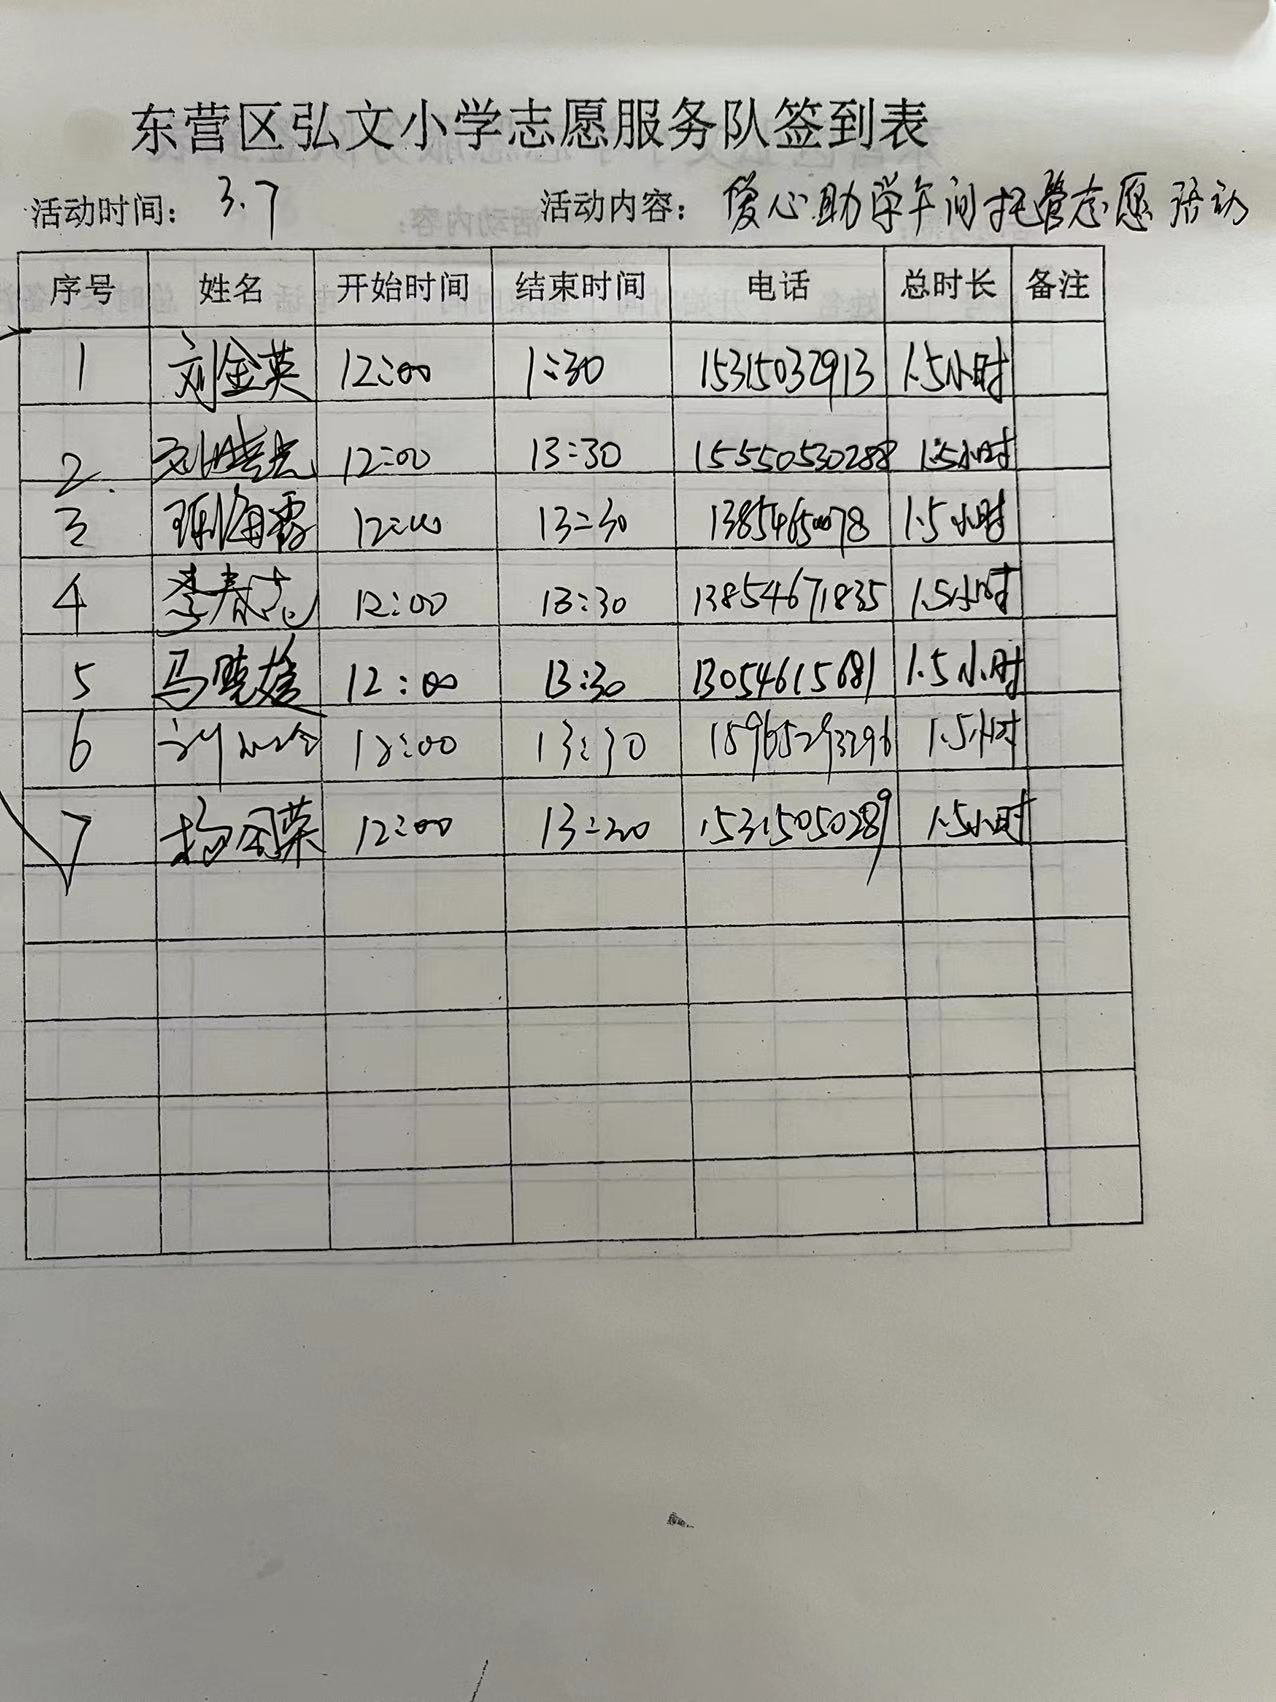 东营区弘文小学志愿服务队签到表
活动时间： 3.7 活动内容： 爱心助学午间托管志愿活动
序号 姓名 开始时间 结束时间 电话 总时长 备注
1 刘金英 12:00 1:30 15315032913 1.5小时
2. 12:00 13:30 15550530288 1.5小时
3 12:00 13:30 13854650078 1.5小时
4 李春志 12:00 13:30 13854671835 1.5小时
5 马晓 12:00 13:30 13054615681 1.5小时
6 12:00 13:30 15965293296 1.5小时
7 杨风荣 12:00 13:30 15315050289 1.5小时